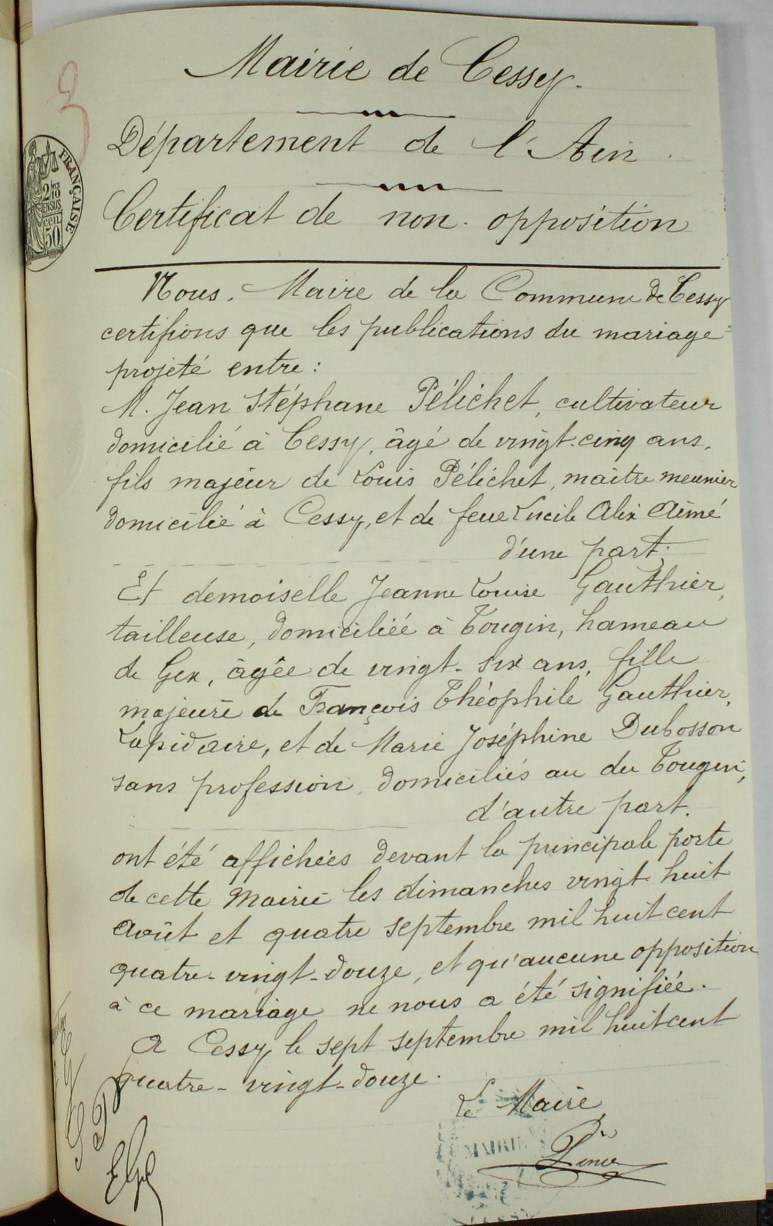 3
Mairie de Cessy.
Département de l'Ain.
Certificat de non-opposition
FRANÇAISE
50
Nous, Maire de la Commune de Cessy
certifions que les publications du mariage
projeté entre :
M. Jean Stéphane Pélichet, cultivateur
domicilié à Cessy, âgé de vingt-cinq ans,
fils majeur de Louis Pélichet, maître meunier
domicilié à Cessy, et de feue Lucile Alix Aimé
d'une part;
Et demoiselle Jeanne Louise Gauthier,
tailleuse, domiciliée à Tougin, hameau
de Gex, âgée de vingt-six ans, fille
majeure de François Théophile Gauthier,
Lapidaire, et de Marie Joséphine Dubosson
sans profession, domiciliés au dit Tougin,
d'autre part.
ont été affichées devant la principale porte
de cette Mairie les dimanches vingt-huit
août et quatre septembre mil huit cent
quatre-vingt-douze, et qu'aucune opposition
à ce mariage ne nous a été signifiée.
A Cessy le sept septembre mil huit cent
quatre-vingt-douze.
Le Maire,
MAIRIE